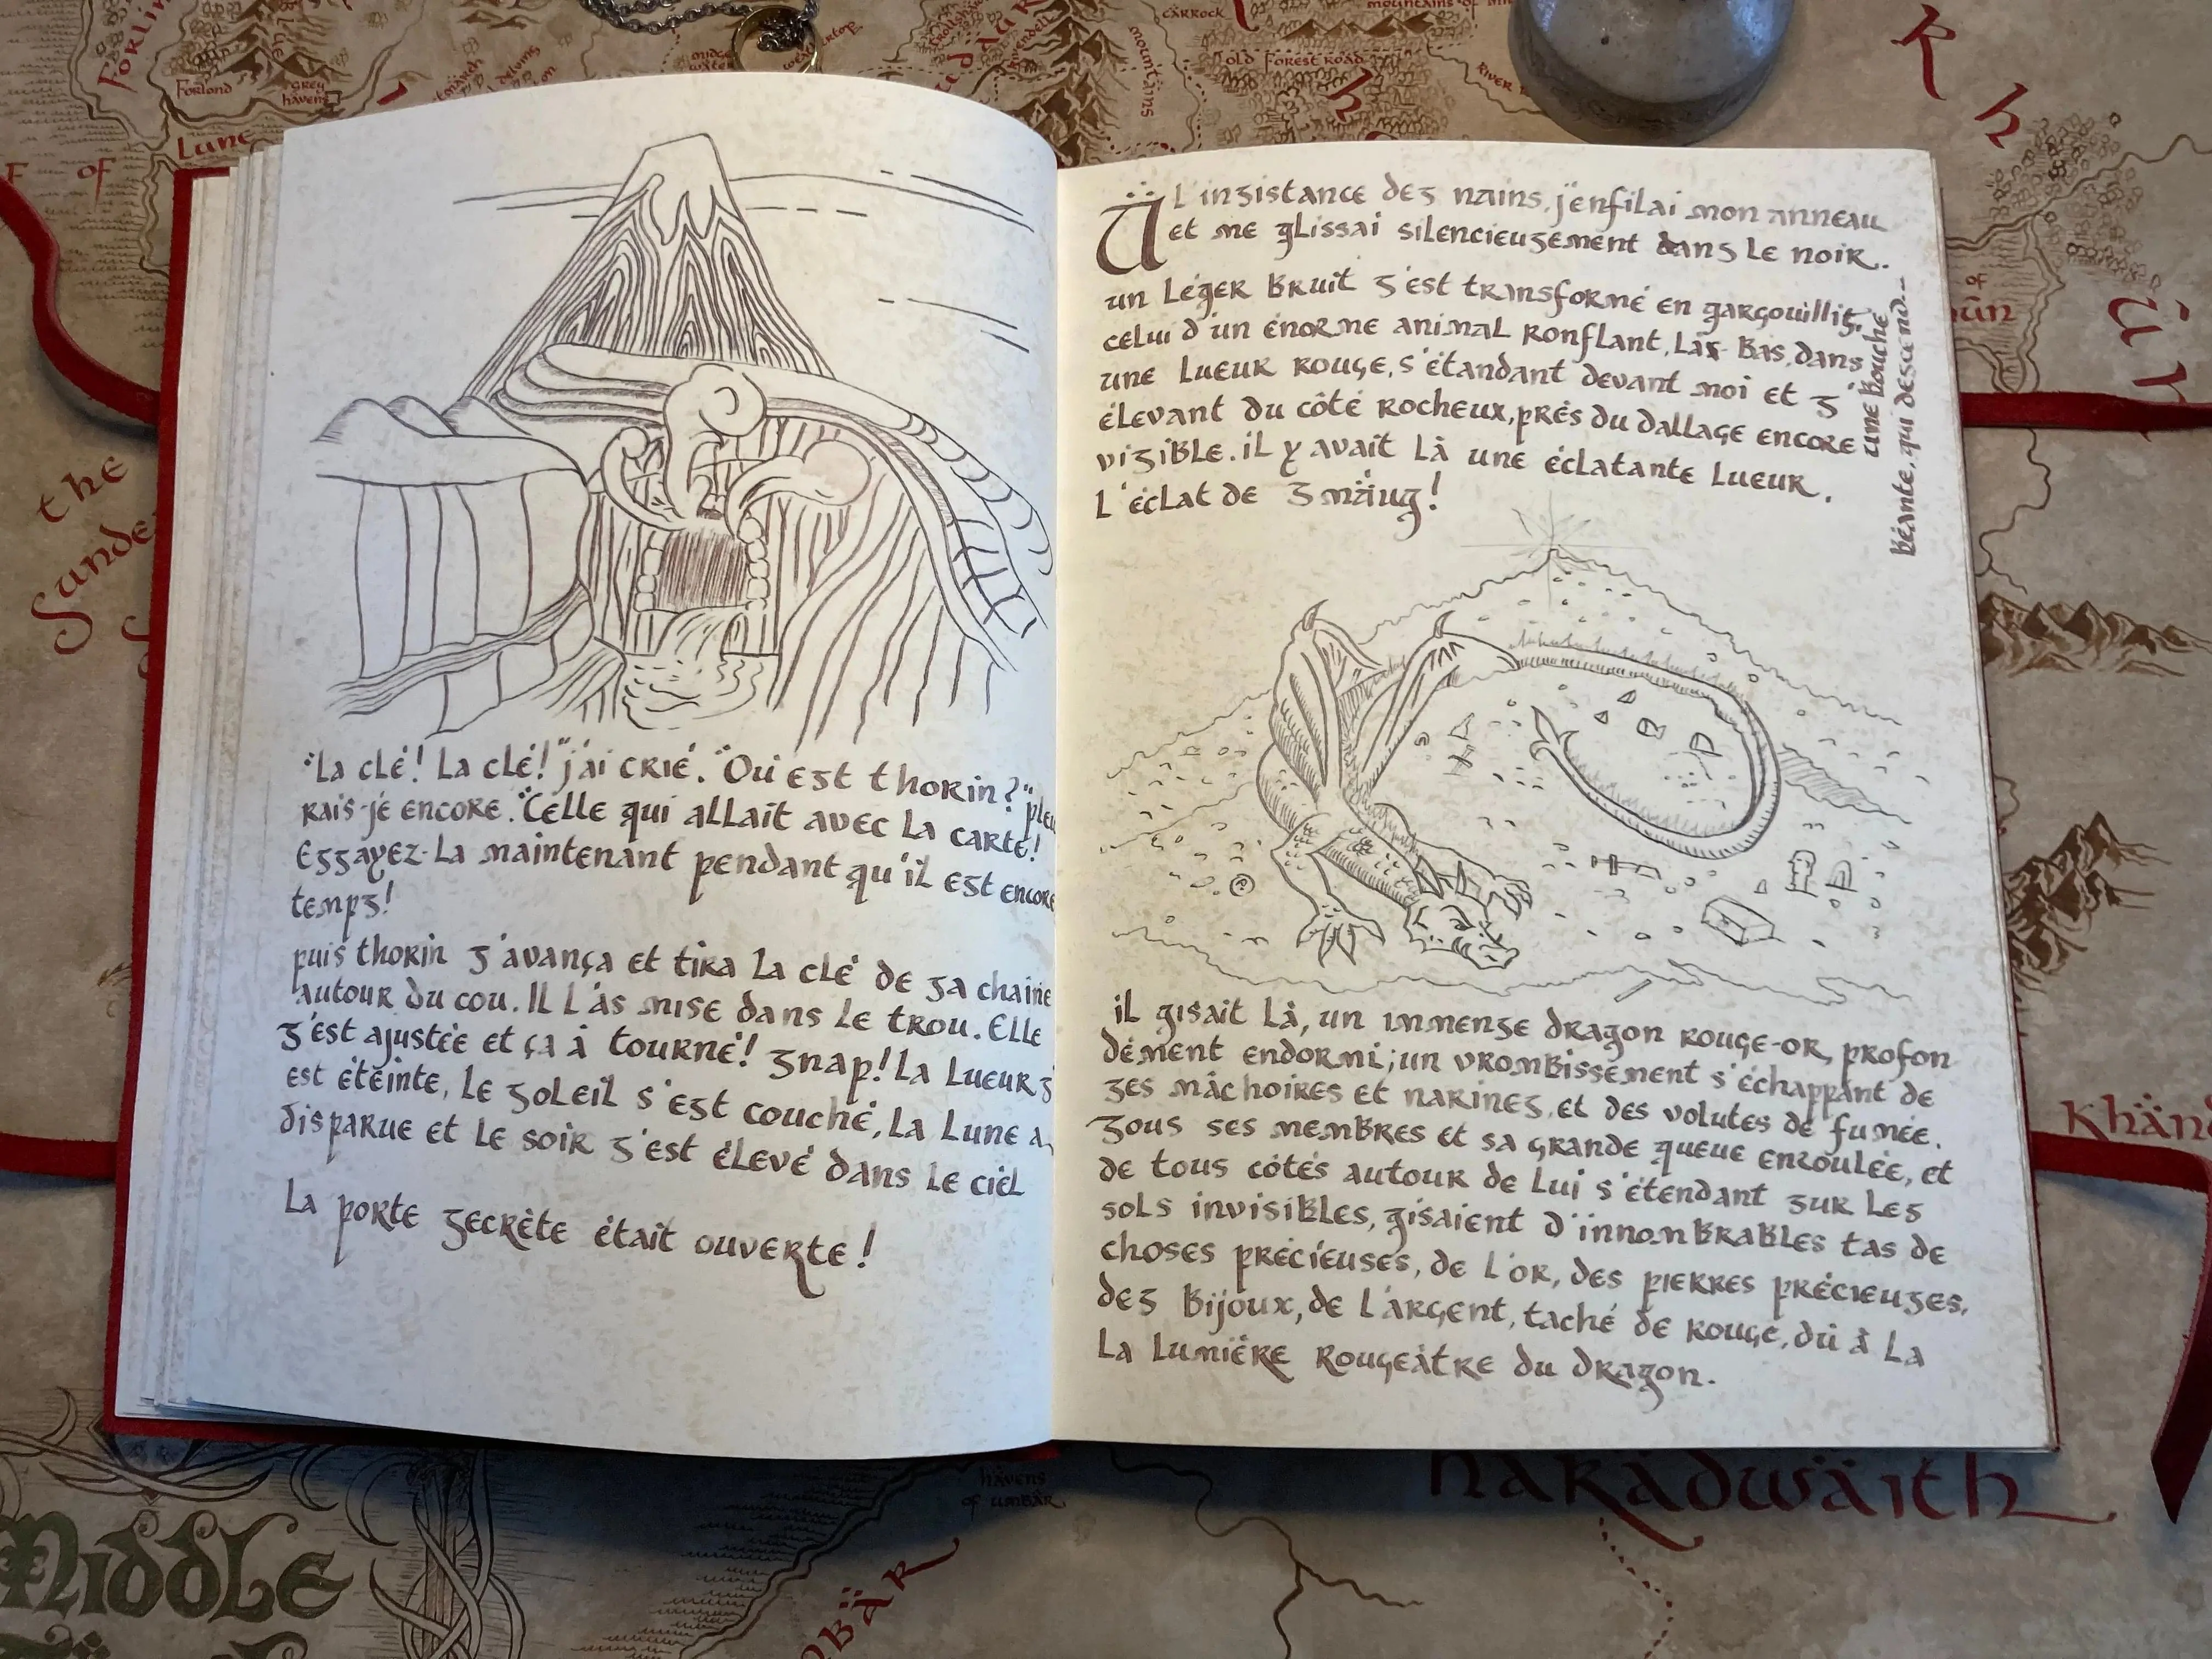 "La clé! La clé!" j'ai crié. "Où est thorin?" pleu
rais-je encore. "Celle qui allait avec la carte!
Essayez-La maintenant pendant qu'il est encore
temps!
puis thorin s'avança et tira La clé de sa chaine
autour du cou. Il L'as mise dans le trou. Elle
s'est ajustée et ça à tourné! snap! La Lueur s'
est éteinte, Le soleil s'est couché, La Lune a
disparue et le soir s'est élevé dans le ciel
La porte secrète était ouverte!
à L'insistance des nains, j'enfilai mon anneau
et me glissai silencieusement dans le noir.
un Léger Bruit s'est transformé en gargouillis,
celui d'un énorme animal ronflant, Là-Bas, dans
une Lueur rouge, s'étandant devant moi et s'
élevant du côté rocheux, près du dallage encore
visible. il y avait Là une éclatante Lueur.
L'éclat de smaug!
une Bouche
béante, qui descend--
il gisait Là, un immense dragon rouge-or, profon
dément endormi; un vrombissement s'échappant de
ses mâchoires et narines, et des volutes de fumée.
sous ses membres et sa grande queue enroulée, et
de tous côtés autour de Lui s'étendant sur Les
sols invisibles, gisaient d'innombrables tas de
choses précieuses, de L'or, des pierres précieuses,
des Bijoux, de L'argent, taché de rouge, dû à La
La Lumière Rougeâtre du dragon.
Forlond
grey
havens
Lune
OF
the
Sunde
CARROCK
mountains of
OLD FOREST ROAD
RIVER
mountains
Rivendell
weathertop
Khänd
havens
of umbär
haradwäith
Middle